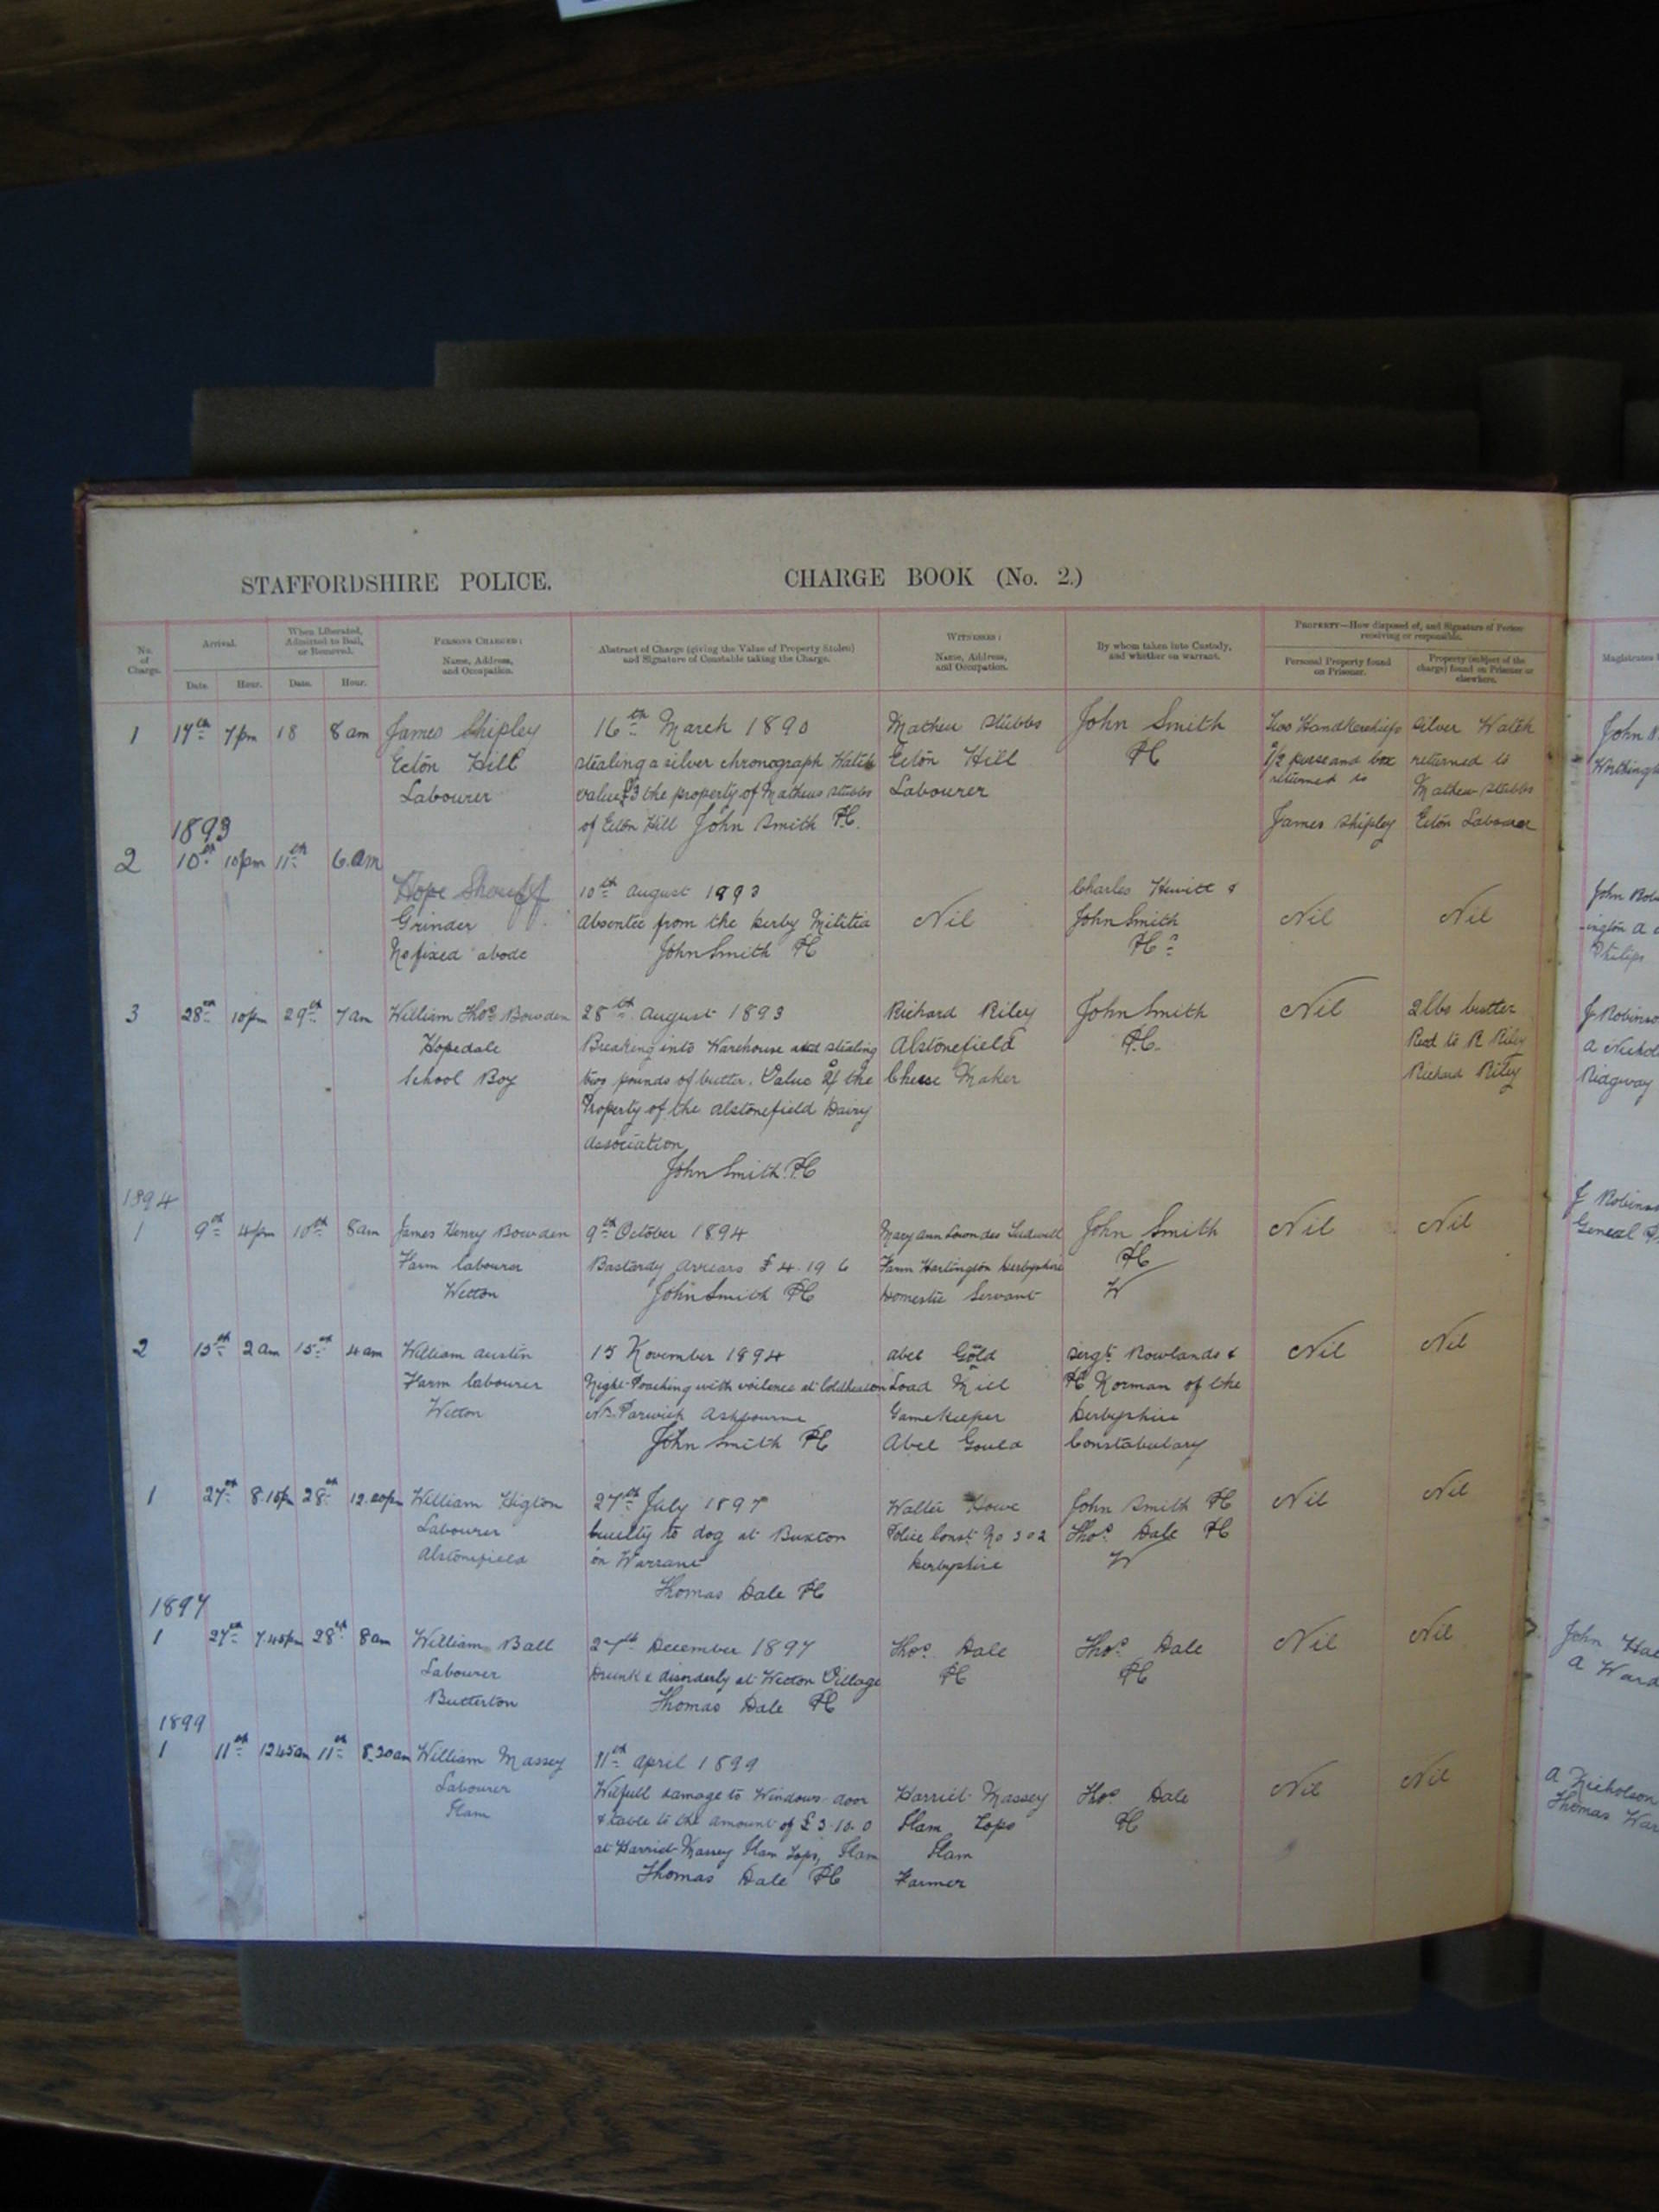 STAFFORDSHIRE POLICE. CHARGE BOOK (No. 2.)
No. of Charge.
Arrival.
Date. Hour.
When Liberated, Admitted to Bail, or Removed.
Date. Hour.
PERSONS CHARGED:
Name, Address, and Occupation.
Abstract of Charge (giving the Value of Property Stolen) and Signature of Constable taking the Charge.
WITNESSES:
Name, Address, and Occupation.
By whom taken into Custody, and whether on warrant.
PROPERTY—How disposed of, and Signature of Person receiving or responsible.
Personal Property found on Prisoner.
Property (subject of the charge) found on Prisoner or elsewhere.
Magistrates
1 17th 7pm 18 8am
James Shipley
Ecton Hill
Labourer
16th March 1890
stealing a silver chronograph Watch
value £3 the property of Mathew Stubbs
of Ecton Hill John Smith PC.
Mathew Stubbs
Ecton Hill
Labourer
John Smith
PC
Two Handkerchiefs
purse and box
returned to
James Shipley
Silver Watch
returned to
Mathew Stubbs
Ecton Labourer
1893
2 10th 10pm 11th 6.am
Hope
Grinder
No fixed abode
10th August 1893
Absentee from the Derby Militia
John Smith PC
Nil
Charles Hewitt &
John Smith
PCs
Nil
Nil
3 28th 10pm 29th 7am
William Thos Bowden
Hopedale
School Boy
28th August 1893
Breaking into Warehouse and stealing
two pounds of butter. Value 2/ the
Property of the Alstonefield Dairy
Association
John Smith. PC
Richard Riley
Alstonefield
Cheese Maker
John Smith
P.C.
Nil
2 lbs butter
Recd to R Riley
Richard Riley
1894
1 9th 4pm 10th 8am
James Henry Bowden
Farm labourer
Wetton
9th October 1894
Bastardy Arrears £4.19 6
John Smith PC
Mary Ann Lowndes
Farm Hartington Derbyshire
Domestic Servant
John Smith
PC
W
Nil
Nil
2 15th 2am 15th 4am
William Austin
Farm labourer
Wetton
15 November 1894
Night-Poaching with voilence at Coldheaton
Nr. Parwich Ashbourne
John Smith PC
Abel Gold
Load Mill
Gamekeeper
Abel Gould
Sergt Rowlands &
PC Norman of the
Derbyshire
Constabulary
Nil
Nil
1 27th 8.15pm 28th 12.20pm
William Higton
Labourer
Alstonefield
27th July 1897
Cruelty to dog at Buxton
on Warrant
Thomas Dale PC
Walter Howe
Police Const No 302
Derbyshire
John Smith PC
Thos Dale PC
W
Nil
Nil
1897
1 27th 7.45pm 28th 8am
William Ball
Labourer
Butterton
27th December 1897
Drunk & disorderly at Wetton Village
Thomas Dale PC
Thos Dale
PC
Thos Dale
PC
Nil
Nil
1899
1 11th 12.45am 11th 8.30am
William Massey
Labourer
Ilam
11th April 1899
Wilfull damage to Windows door
& table to the amount of £3.10.0
at Harriet Massey Ilam Tops, Ilam
Thomas Dale PC
Harriet Massey
Ilam Tops
Ilam
Farmer
Thos Dale
PC
Nil
Nil
A Nicholson
Thomas